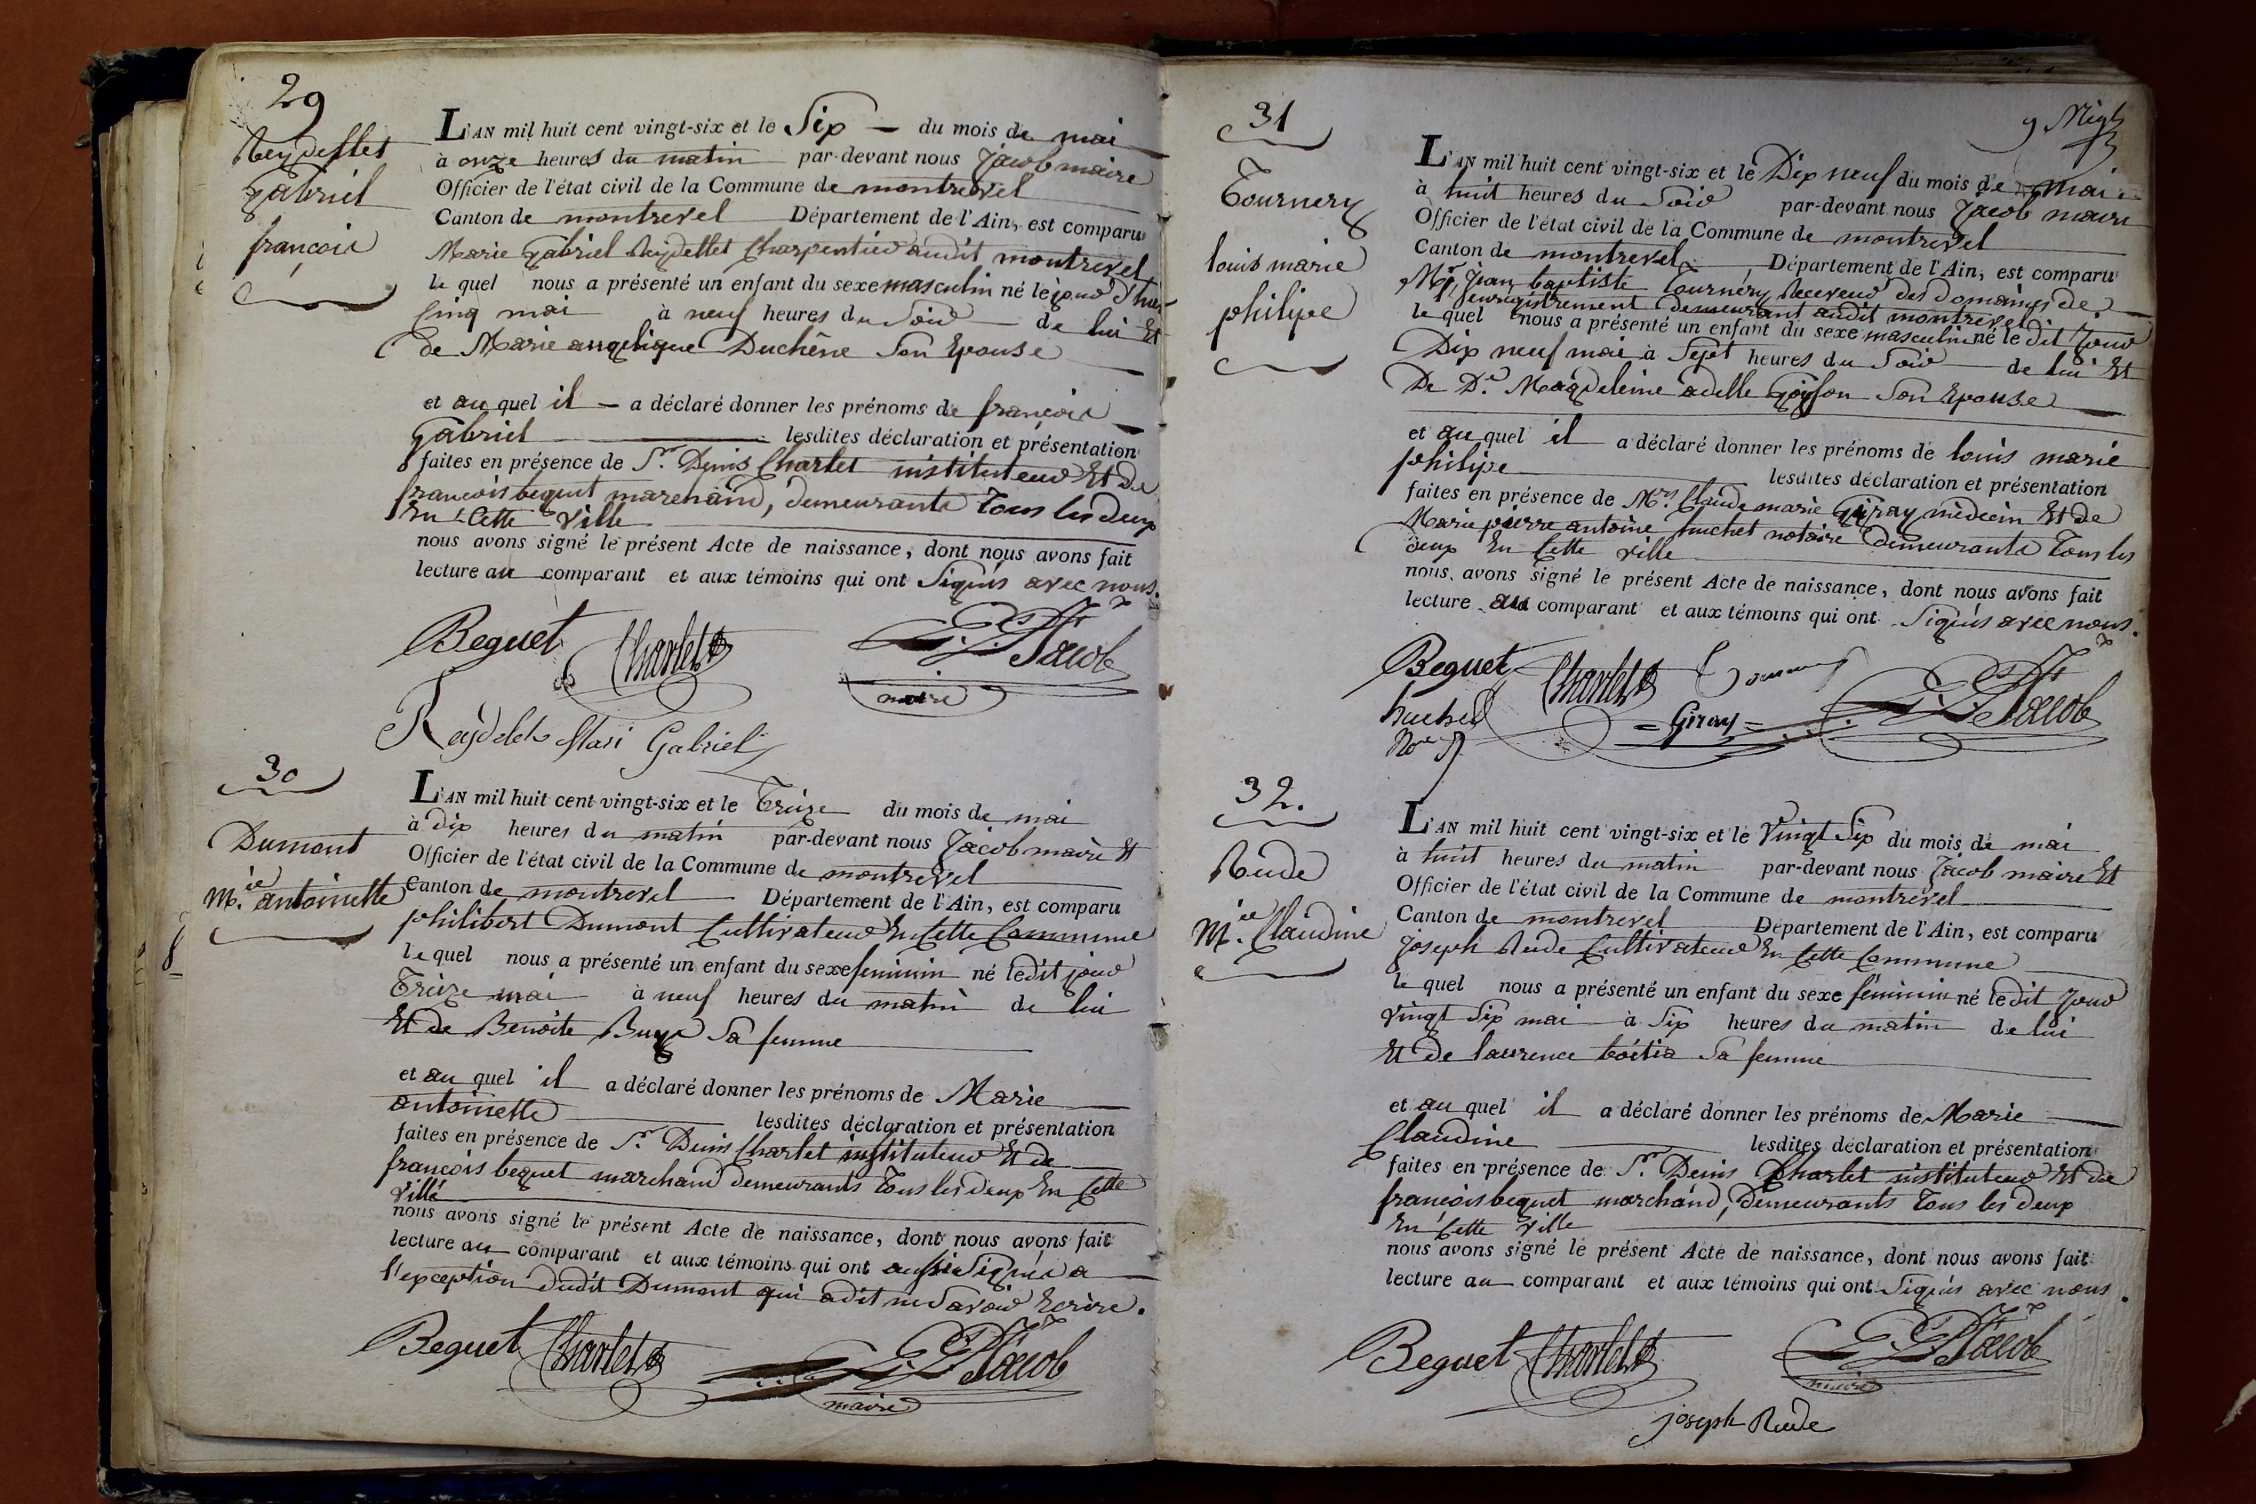 29
Reydellet
Gabriel
françois
L'AN mil huit cent vingt-six et le Six du mois de mai
à onze heures du matin par-devant nous Jacob maire
Officier de l'état civil de la Commune de montrevel
Canton de montrevel Département de l'Ain, est comparu
Marie Gabriel Reydellet Charpentier audit montrevel
le quel nous a présenté un enfant du sexe masculin né le jour d'hier
Cinq mai à neuf heures du Soir de lui Et
de Marie angelique Duchêne Son Epouse
et au quel il a déclaré donner les prénoms de françois
Gabriel lesdites déclaration et présentation
faites en présence de Sr. Denis Charlet instituteur Et de
françois bequet marchand, demeurants Tous les deux
En Cette Ville
nous avons signé le présent Acte de naissance, dont nous avons fait
lecture au comparant et aux témoins qui ont Signés avec nous.
Beguet Charlet Jacob
maire
Reydelet Mari Gabriel
30
Dumont
M.ie antoinette
L'AN mil huit cent vingt-six et le Treize du mois de mai
à dix heures du matin par-devant nous Jacob maire Et
Officier de l'état civil de la Commune de montrevel
Canton de montrevel Département de l'Ain, est comparu
philibert Dumont Cultivateur En Cette Commune
le quel nous a présenté un enfant du sexe feminin né ledit jour
Treize mai à neuf heures du matin de lui
Et de Benoite Sa femme
et au quel il a déclaré donner les prénoms de Marie
antoinette lesdites déclaration et présentation
faites en présence de Sr. Denis Charlet instituteur Et de
françois bequet marchand demeurants Tous les deux En Cette
Ville
nous avons signé le présent Acte de naissance, dont nous avons fait
lecture au comparant et aux témoins qui ont aussi Signés a
l'exception dudit Dumont qui a dit ne Savoir Ecrire.
Beguet Charlet Jacob
maire
31
Tournery
louis marie
philipe
L'AN mil huit cent vingt-six et le Dix neuf du mois de mai
à huit heures du Soir par-devant nous Jacob maire
Officier de l'état civil de la Commune de montrevel
Canton de montrevel Département de l'Ain, est comparu
Mr. Jean baptiste Tournery Receveur des domaines de
l'enregistrement demeurant audit montrevel
le quel nous a présenté un enfant du sexe masculin né ledit Jour
Dix neuf mai à Sept heures du Soir de lui Et
De De. Magdeleine adelle Son Epouse
et au quel il a déclaré donner les prénoms de louis marie
philipe lesdites déclaration et présentation
faites en présence de Mrs. Claude marie Giray médecin Et de
Marie pierre antoine huchet notaire demeurants Tous les
deux En Cette ville
nous avons signé le présent Acte de naissance, dont nous avons fait
lecture au comparant et aux témoins qui ont Signés avec nous.
Beguet Charlet Jacob
huchet Giray
Nore
32.
Rude
M.ie Claudine
L'AN mil huit cent vingt-six et le Vingt Six du mois de mai
à huit heures du matin par-devant nous Jacob maire Et
Officier de l'état civil de la Commune de montrevel
Canton de montrevel Département de l'Ain, est comparu
Joseph Rude Cultivateur En Cette Commune
le quel nous a présenté un enfant du sexe féminin né ledit Jour
Vingt Six mai à Six heures du matin de lui
Et de laurence Sa femme
et au quel il a déclaré donner les prénoms de Marie
Claudine lesdites déclaration et présentation
faites en présence de Sr. Denis Charlet instituteur Et de
françois bequet marchand, Demeurants Tous les deux
En Cette Ville
nous avons signé le présent Acte de naissance, dont nous avons fait
lecture au comparant et aux témoins qui ont Signés avec nous.
Beguet Charlet Jacob
maire
joseph Rude